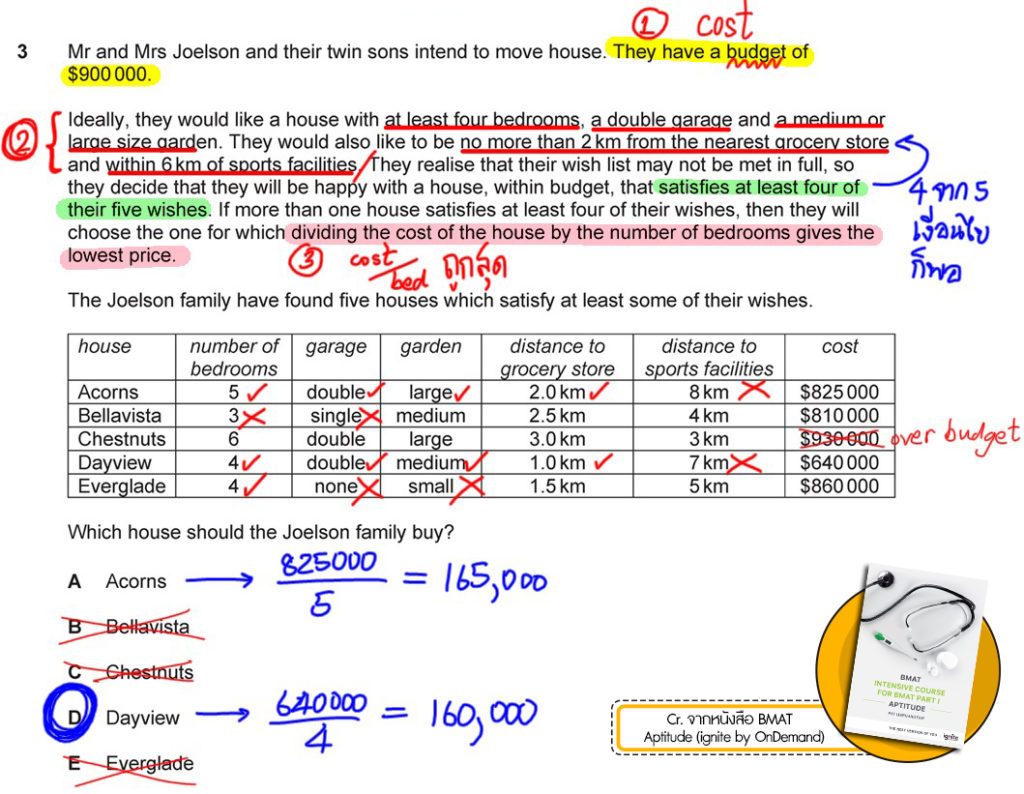 ① cost
3 Mr and Mrs Joelson and their twin sons intend to move house. They have a budget of
$900 000.
② Ideally, they would like a house with at least four bedrooms, a double garage and a medium or
large size garden. They would also like to be no more than 2 km from the nearest grocery store
and within 6 km of sports facilities. They realise that their wish list may not be met in full, so
they decide that they will be happy with a house, within budget, that satisfies at least four of
their five wishes. If more than one house satisfies at least four of their wishes, then they will
choose the one for which dividing the cost of the house by the number of bedrooms gives the
lowest price.
4 จาก 5
เงื่อนไข
ก็พอ
③ cost/bed ถูกสุด
The Joelson family have found five houses which satisfy at least some of their wishes.
house number of bedrooms garage garden distance to grocery store distance to sports facilities cost
Acorns 5 ✓ double ✓ large ✓ 2.0 km ✓ 8 km ✗ $825 000
Bellavista 3 ✗ single ✗ medium 2.5 km 4 km $810 000
Chestnuts 6 double large 3.0 km 3 km $930 000 over budget
Dayview 4 ✓ double ✓ medium ✓ 1.0 km ✓ 7 km ✗ $640 000
Everglade 4 ✓ none ✗ small ✗ 1.5 km 5 km $860 000
Which house should the Joelson family buy?
A Acorns → 825000/5 = 165,000
B Bellavista
C Chestnuts
D Dayview → 640000/4 = 160,000
E Everglade
BMAT
INTENSIVE COURSE
FOR BMAT PART I
APTITUDE
THE BEST VERSION OF YOU
ignite
Cr. จากหนังสือ BMAT
Aptitude (ignite by OnDemand)